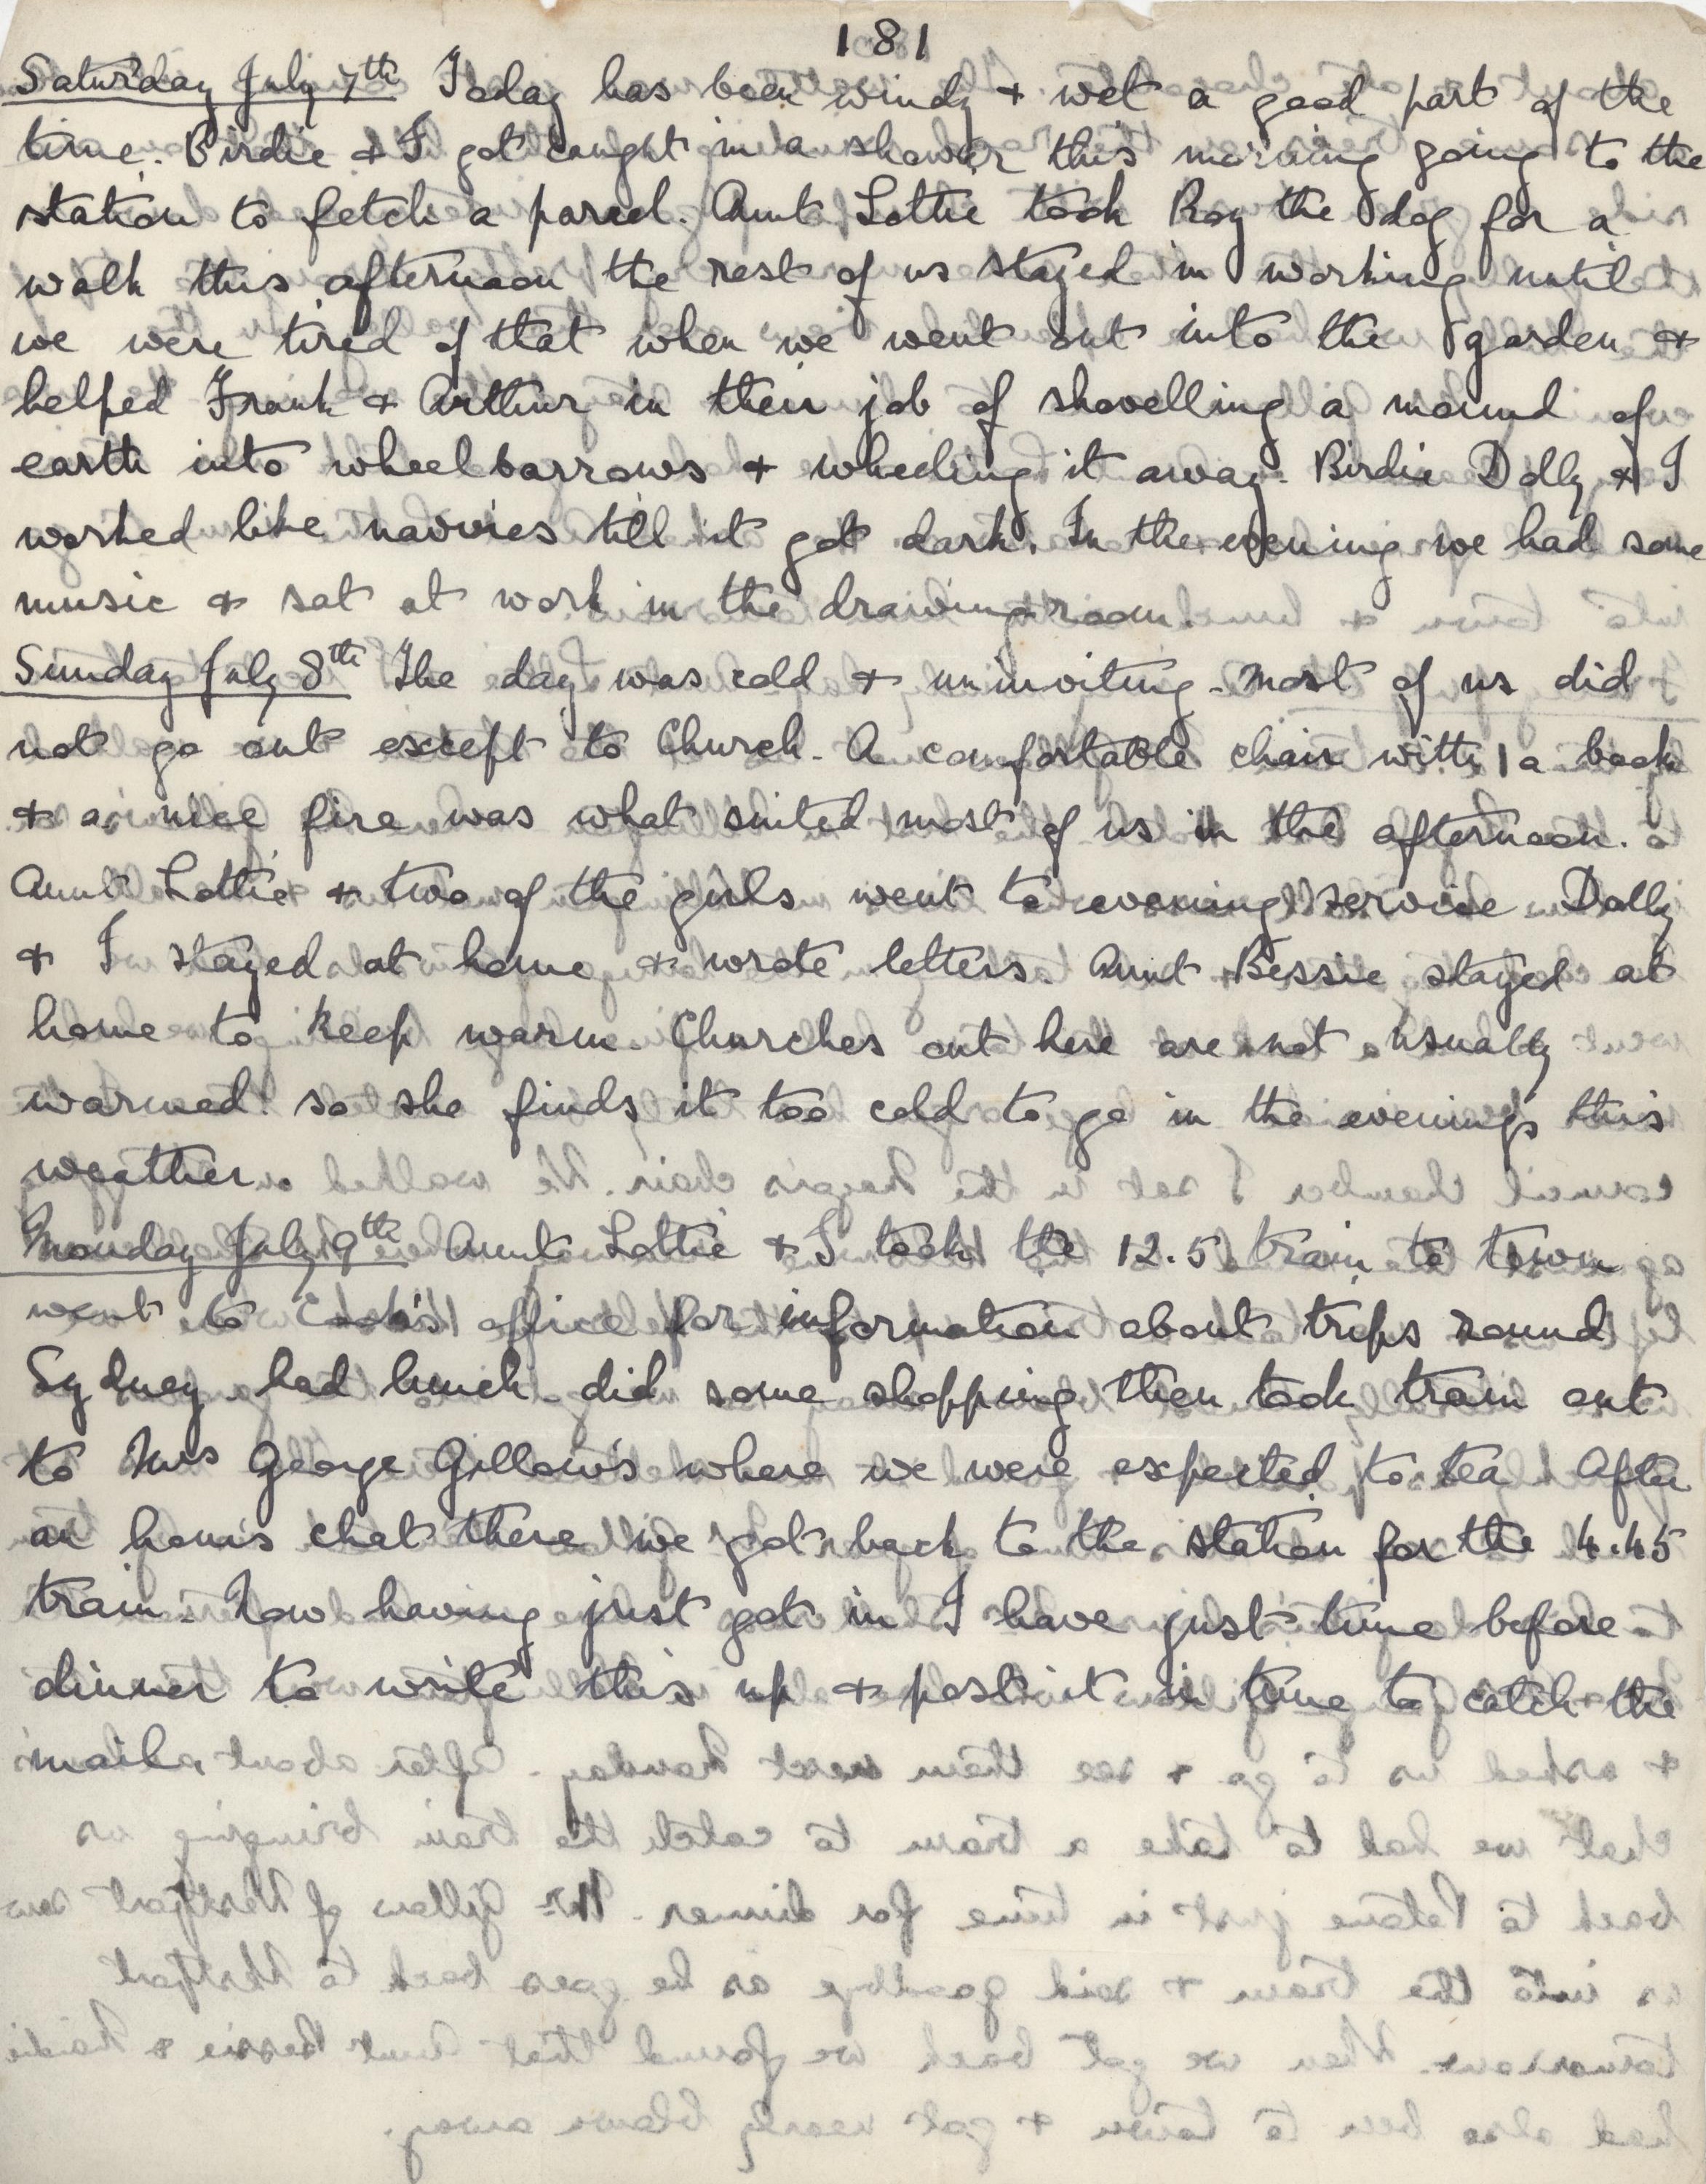 181
Saturday July 7th Today has been windy + wet a good part of the
time. Birdie + I got caught in a shower this morning going to the
station to fetch a parcel. Aunt Lottie took Roy the dog for a
walk this afternoon the rest of us stayed in working until
we were tired of that when we went out into the garden +
helped Frank + Arthur in their job of shovelling a mound of
earth into wheelbarrows + wheeling it away. Birdie Dolly + I
worked like navvies till it got dark. In the evening we had some
music + sat at work in the drawingroom.
Sunday July 8th The day was cold + uninviting - most of us did
not go out except to Church. A comfortable chair with a book
+ a nice fire was what suited most of us in the afternoon.
Aunt Lottie + two of the girls went to evening service Dolly
+ I stayed at home + wrote letters. Aunt Bessie stayed at
home to keep warm. Churches out here are not usually
warmed so she finds it too cold to go in the evenings this
weather.
Monday July 9th Aunt Lottie + I took the 12.5 train to town
went to Cook's office for information about trips round
Sydney had lunch did some shopping then took tram out
to Mrs George Gillow's where we were expected to tea After
an hours chat there we got back to the station for the 4.45
train. Now having just got in I have just time before
dinner to write this up + post it in time to catch the
mail.